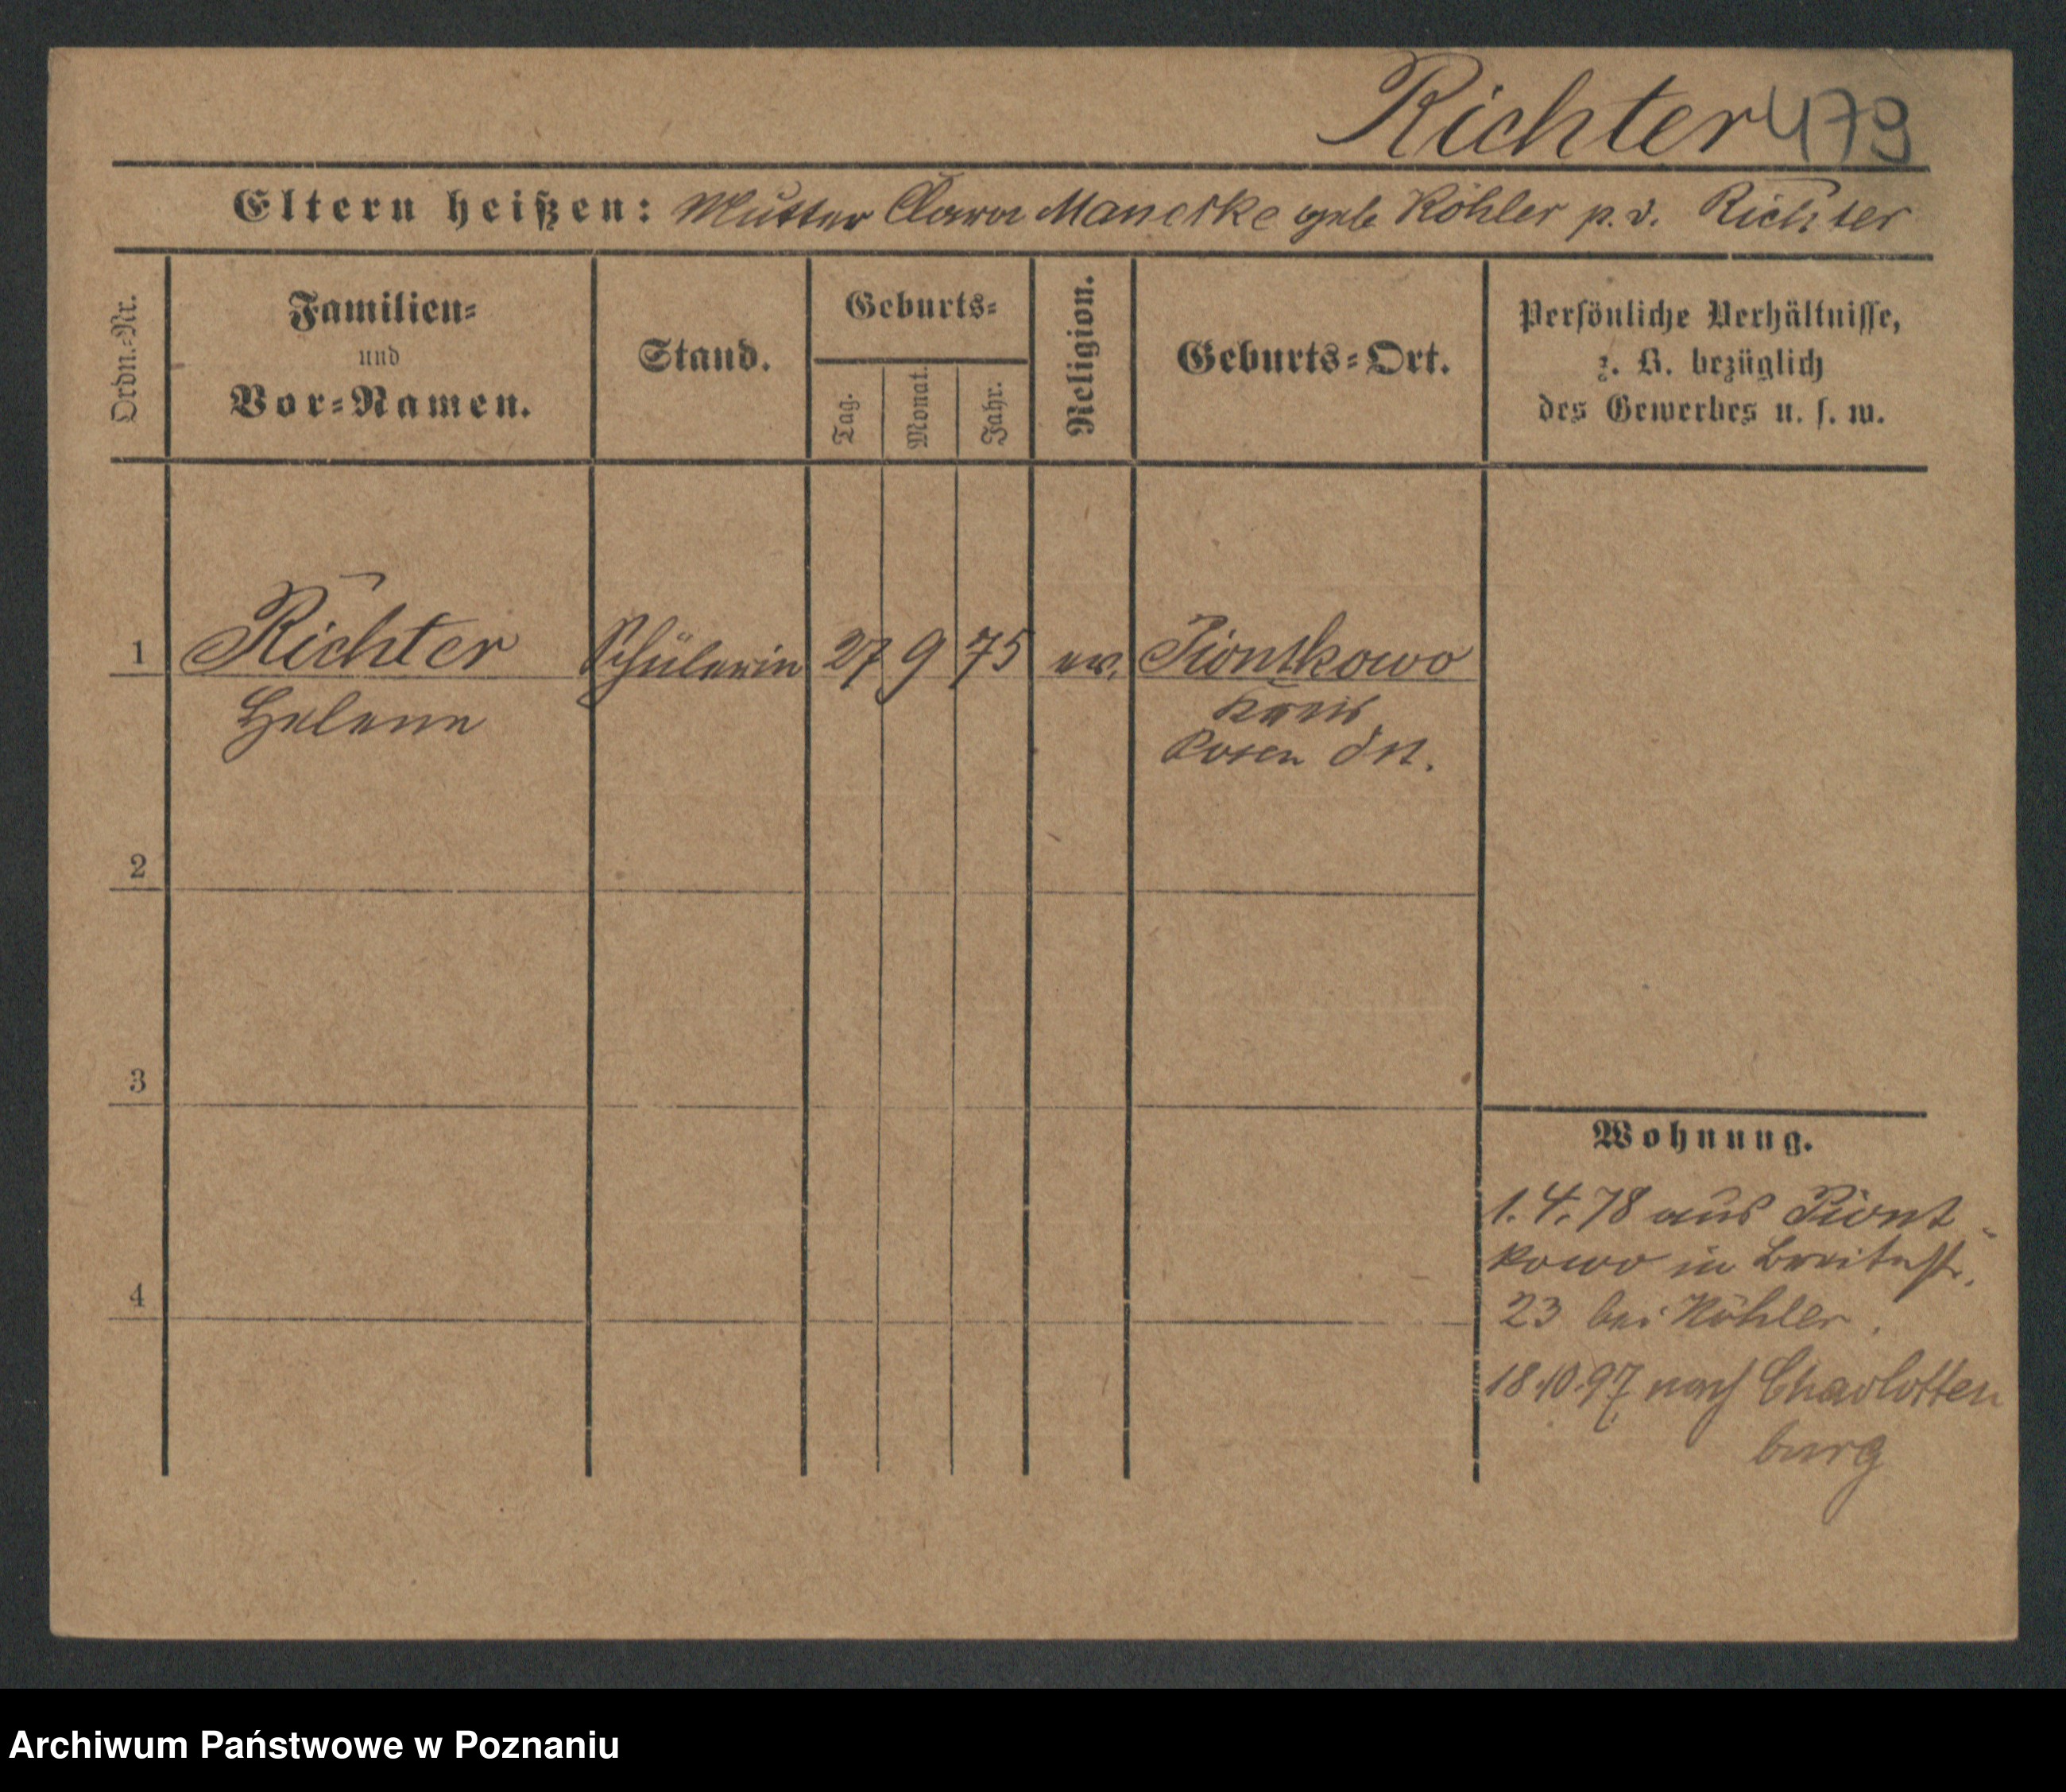 Richter 479
Eltern heißen: Mutter Clara Maneske geb Köhler p. v. Richter
Ordn.-Nr.
Familien-
und
Vor-Namen.
Stand.
Geburts-
Tag.
Monat.
Jahr.
Religion.
Geburts-Ort.
Persönliche Verhältnisse,
z. B. bezüglich
des Gewerbes u. s. w.
1 Richter Schülerin 27 9 75 ev. Piontkowo
Helene Kreis
Posen Ost.
2
3
4
Wohnung.
1. 4. 78 aus Piont-
kowo in Breitestr.
23 bei Köhler.
18.10.97 nach Charlotten
burg
Archiwum Państwowe w Poznaniu